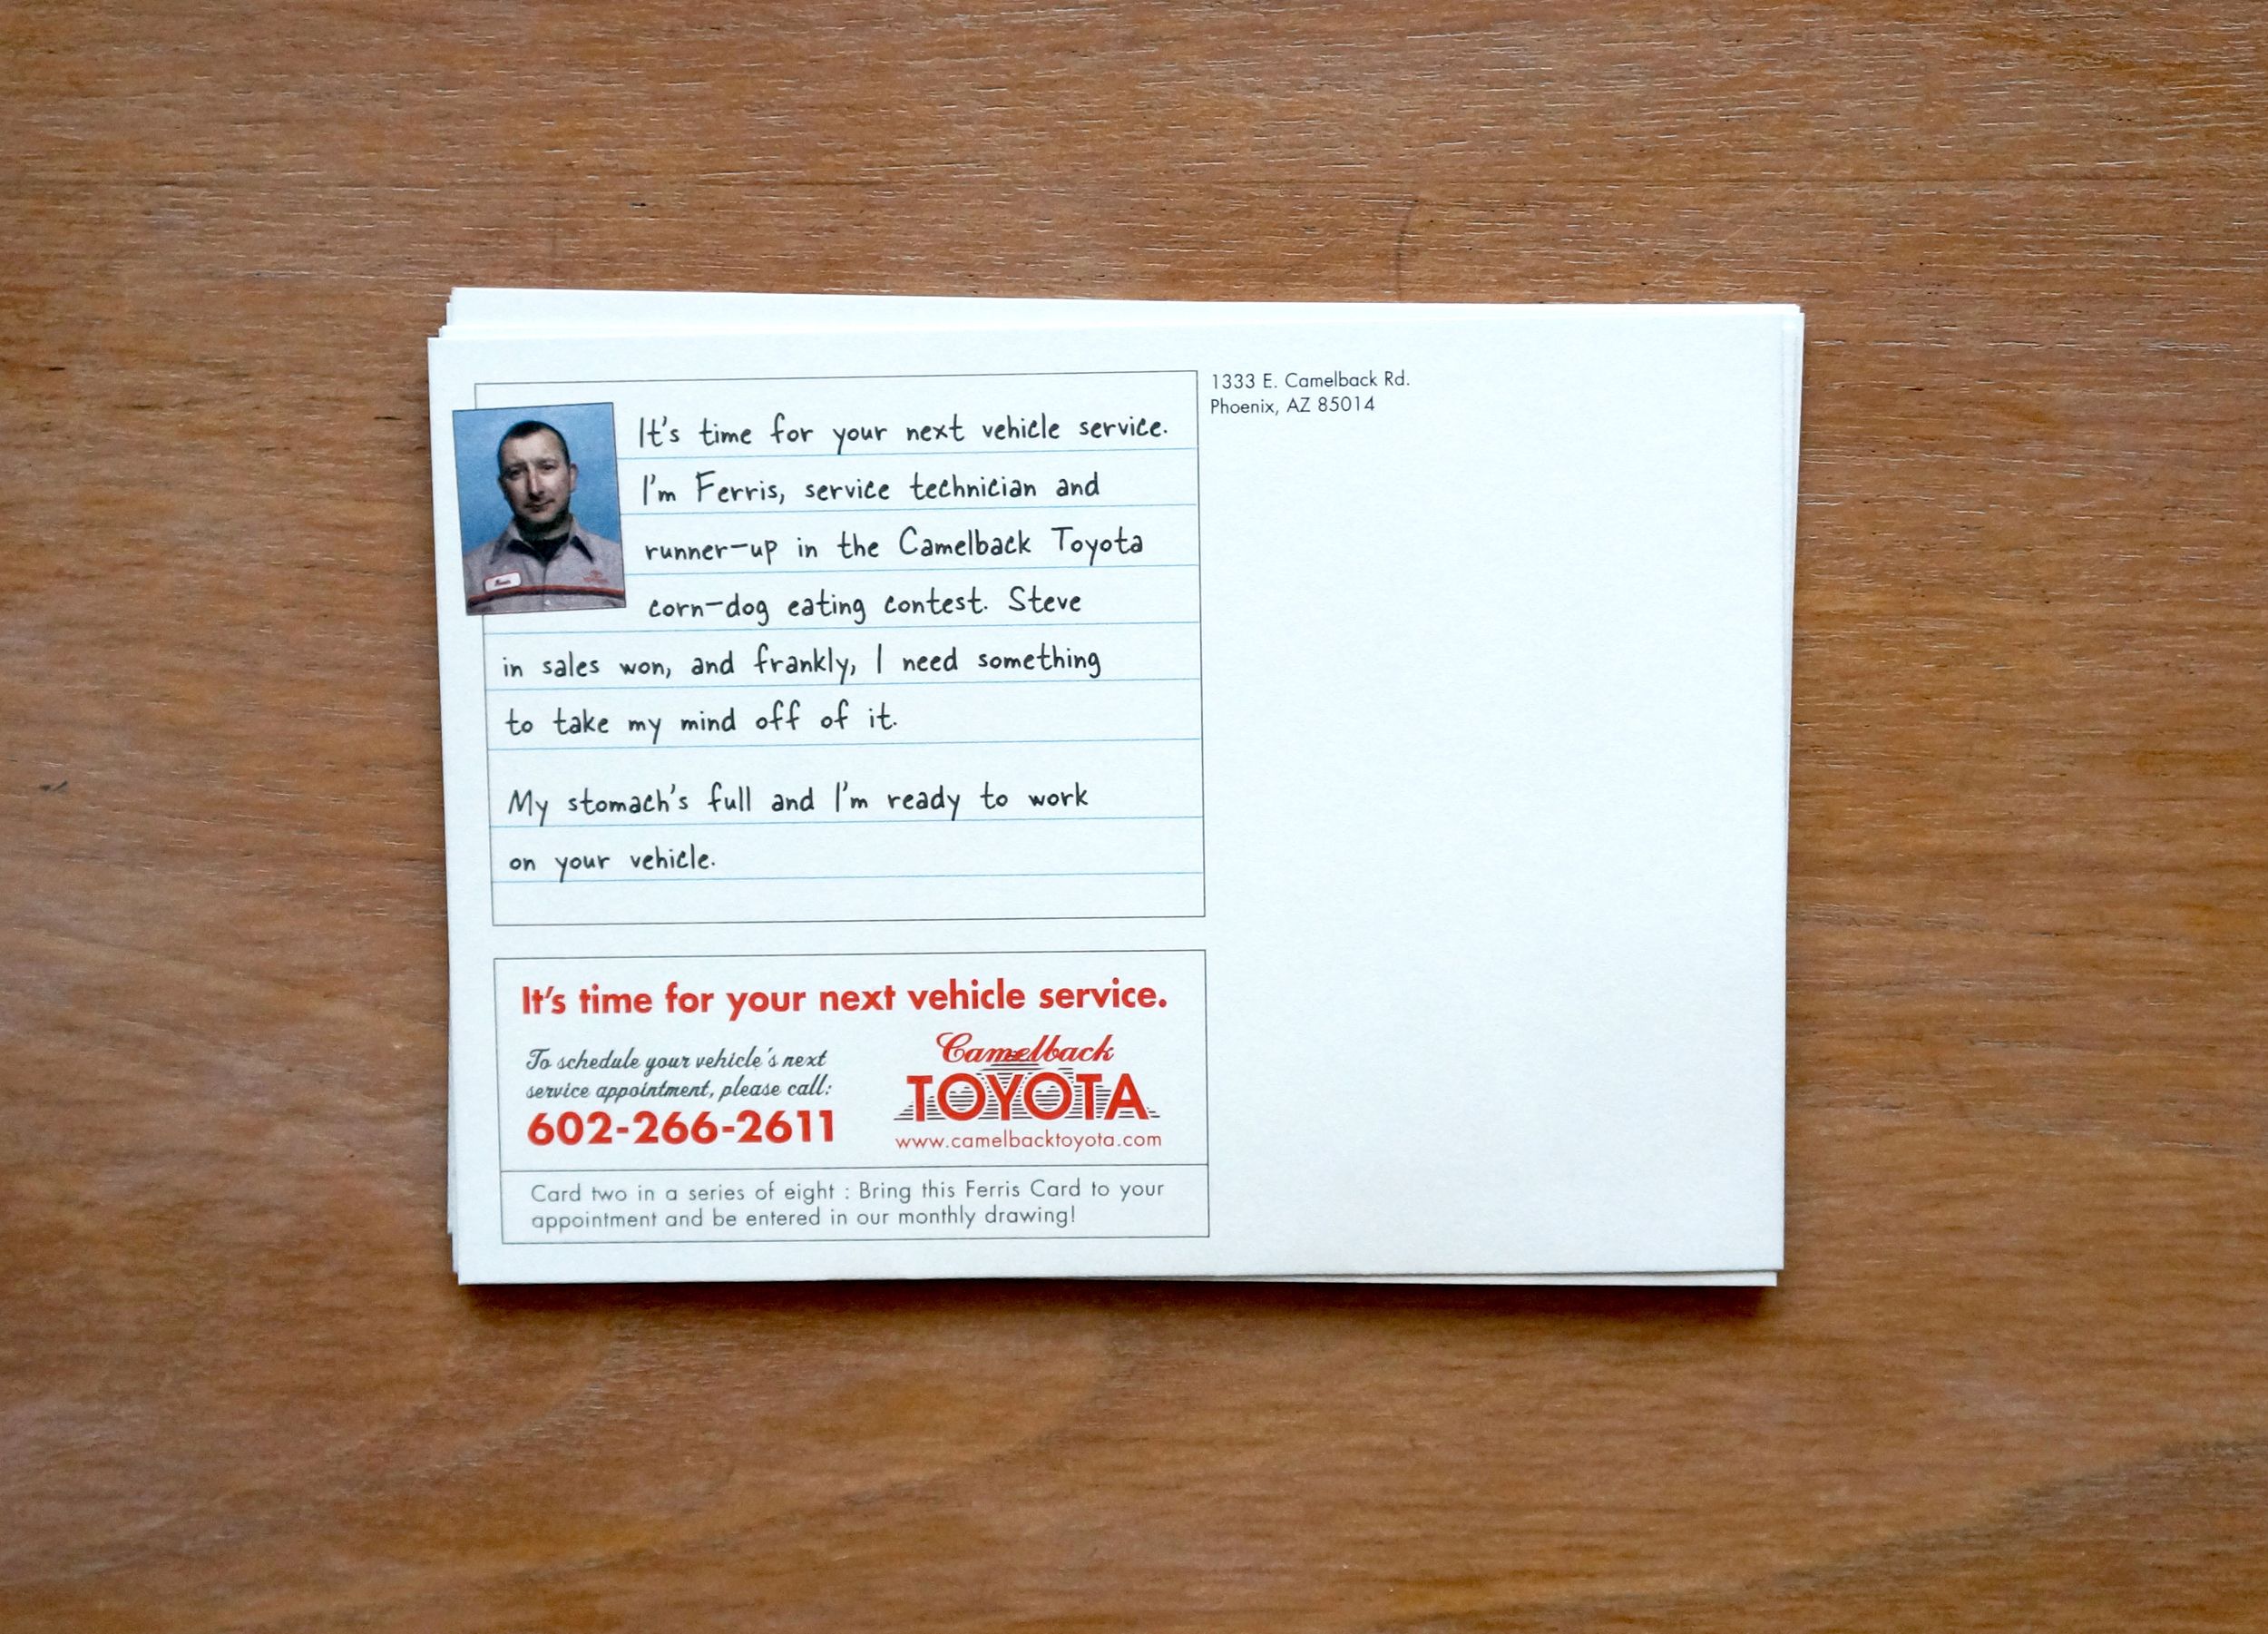 It's time for your next vehicle service.
I'm Ferris, service technician and
runner-up in the Camelback Toyota
corn-dog eating contest. Steve
in sales won, and frankly, I need something
to take my mind off of it.
My stomach's full and I'm ready to work
on your vehicle.
1333 E. Camelback Rd.
Phoenix, AZ 85014
It's time for your next vehicle service.
To schedule your vehicle's next
service appointment, please call:
602-266-2611
Camelback
TOYOTA
www.camelbacktoyota.com
Card two in a series of eight : Bring this Ferris Card to your
appointment and be entered in our monthly drawing!